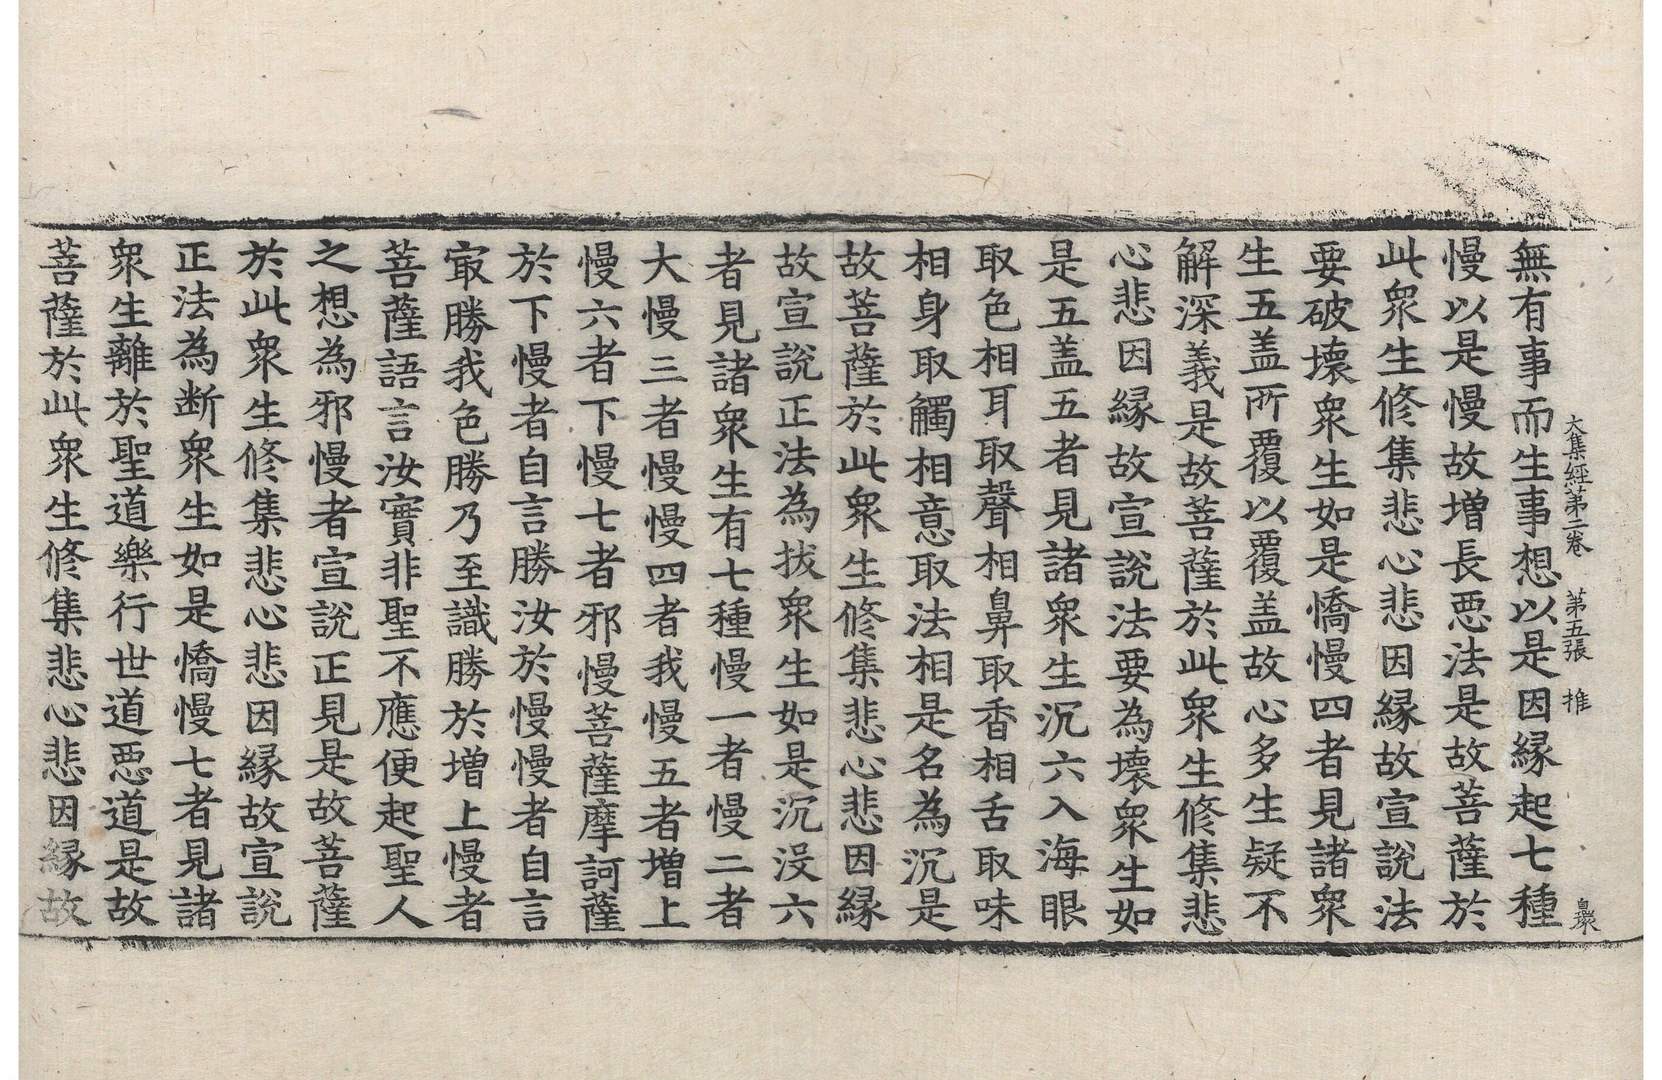 大集經第二卷　第五張　推
無有事而生事想以是因縁起七種
慢以是慢故増長惡法是故菩薩於
此衆生修集悲心悲因縁故宣說法
要破壞衆生如是憍慢四者見諸衆
生五盖所覆以覆盖故心多生疑不
解深義是故菩薩於此衆生修集悲
心悲因縁故宣說法要為壞衆生如
是五盖五者見諸衆生沉六入海眼
取色相耳取聲相鼻取香相舌取味
相身取觸相意取法相是名為沉是
故菩薩於此衆生修集悲心悲因縁
故宣說正法為拔衆生如是沉没六
者見諸衆生有七種慢一者慢二者
大慢三者慢慢四者我慢五者増上
慢六者下慢七者邪慢菩薩摩訶薩
於下慢者自言勝汝於慢慢者自言
㝡勝我色勝乃至識勝於増上慢者
菩薩語言汝實非聖不應便起聖人
之想為邪慢者宣說正見是故菩薩
於此衆生修集悲心悲因縁故宣說
正法為断衆生如是憍慢七者見諸
衆生離於聖道樂行世道惡道是故
菩薩於此衆生修集悲心悲因縁故